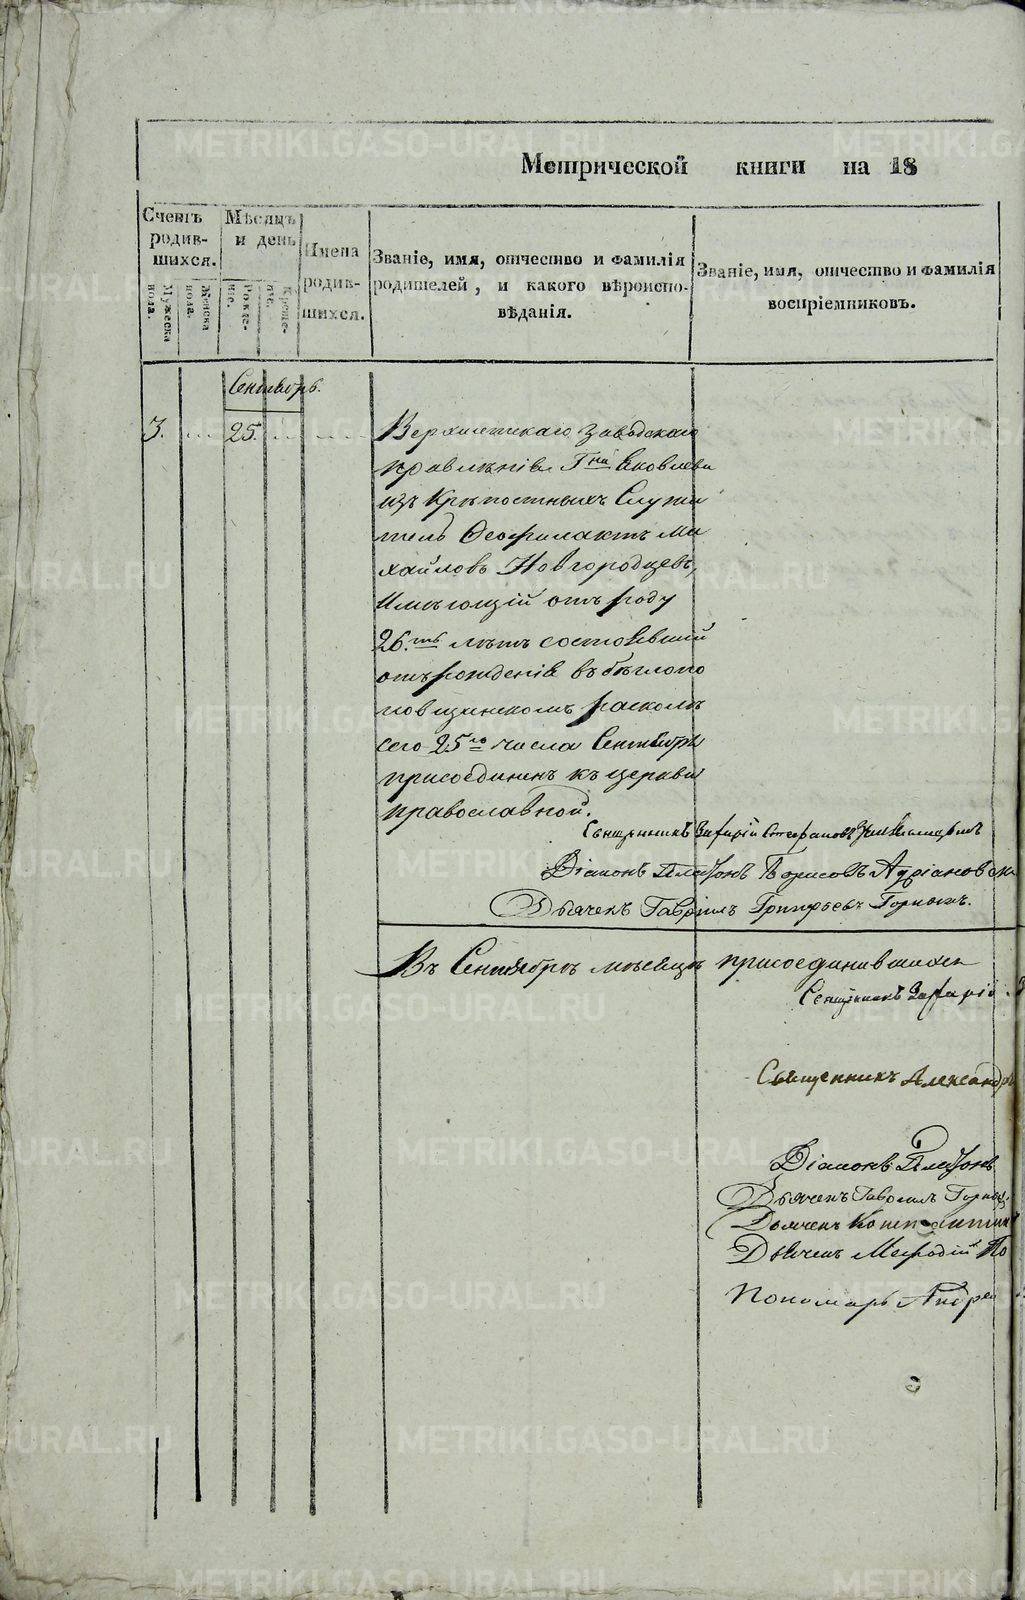 Метрической книги на 18
Счетъ родив-шихся.
Мѣсяцъ и день
Имена родив-шихся.
Званіе, имя, отчество и фамилія
родителей, и какого вѣроиспо-
вѣданія.
Званіе, имя, отчество и фамилія
воспріемниковъ.
Мужеска пола.
Женска пола.
Рожде-ніе.
Креще-ніе.
Сентябрь.
3. 25.
Верхисетскаго Заводскаго
правленія Гна Яковлева
изъ Крѣпостныхъ Служи
тель Феофилактъ Ми
хайловъ Новгородцевъ,
Имѣющій отъ роду
26.ть лѣтъ состоявшій
отъ рожденія въ бѣглопо
повщинскомъ расколѣ
сего 25го числа Сентября
присоединенъ къ церкви
православной.
Священникъ Захарій Стефановъ
Діаконъ Платонъ Борисовъ Адріановск
Дьячекъ Гавріилъ Григорьевъ Горныхъ.
Въ Сентябрѣ мѣсяцѣ присоединившихся
Священникъ Захарій
Священникъ Александръ
Діаконъ Платонъ
Дьячекъ Гавріилъ Горныхъ
Дьячекъ Константинъ
Дьячекъ Мефодій По
Пономарь Андрей
METRIKI.GASO-URAL.RU